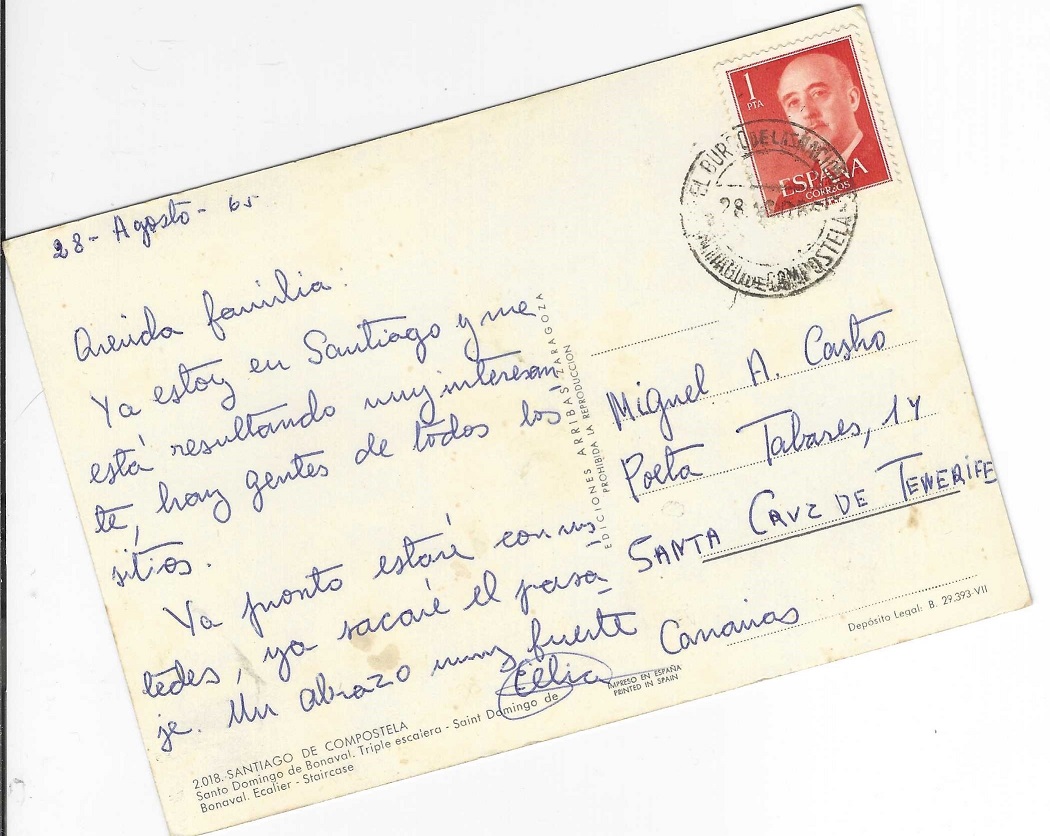 28- Agosto- 65
Querida familia:
Ya estoy en Santiago y me
está resultando muy interesan
te, hay gentes de todos los
sitios.
Ya pronto estaré con us-
tedes, ya sacaré el pasa-
je. Un abrazo muy fuerte
Celia
2.018. SANTIAGO DE COMPOSTELA
Santo Domingo de Bonaval. Triple escalera - Saint Domingo de
Bonaval. Ecalier - Staircase
EDICIONES ARRIBAS ZARAGOZA
PROHIBIDA LA REPRODUCCION
IMPRESO EN ESPAÑA
PRINTED IN SPAIN
1
PTA
ESPAÑA
CORREOS
EL BURGO DE LAS NACIONES
28
SANTIAGO DE COMPOSTELA
Miguel A. Castro
Poeta Tabares, 14
SANTA CRUZ DE TENERIFE
Canarias
Depósito Legal: B. 29.393-VII